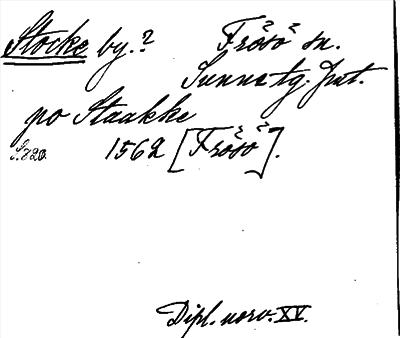 Stocke by.? Frösö sn.
Sunne tg. Jmt.
po Staakke
S. 720. 1562 [Frösö].
Dipl. norv. XV.